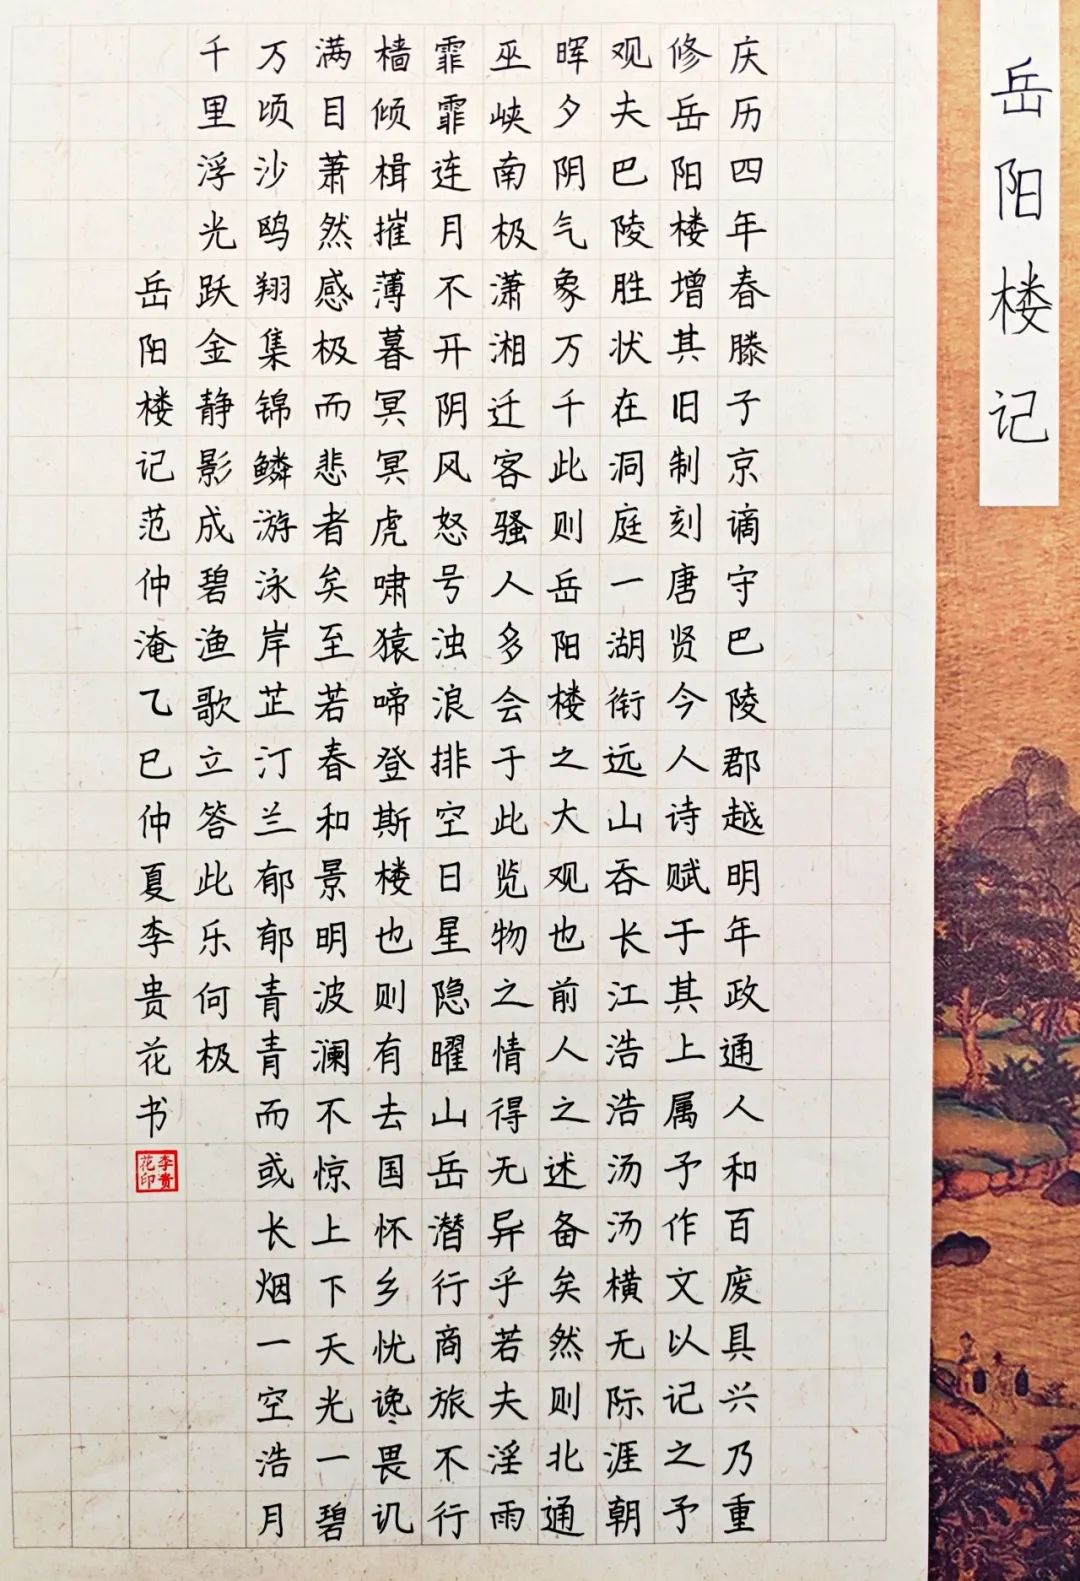 岳阳楼记
庆历四年春滕子京谪守巴陵郡越明年政通人和百废具兴乃重
修岳阳楼增其旧制刻唐贤今人诗赋于其上属予作文以记之予
观夫巴陵胜状在洞庭一湖衔远山吞长江浩浩汤汤横无际涯朝
晖夕阴气象万千此则岳阳楼之大观也前人之述备矣然则北通
巫峡南极潇湘迁客骚人多会于此览物之情得无异乎若夫淫雨
霏霏连月不开阴风怒号浊浪排空日星隐曜山岳潜行商旅不行
樯倾楫摧薄暮冥冥虎啸猿啼登斯楼也则有去国怀乡忧谗畏讥
满目萧然感极而悲者矣至若春和景明波澜不惊上下天光一碧
万顷沙鸥翔集锦鳞游泳岸芷汀兰郁郁青青而或长烟一空浩月
千里浮光跃金静影成碧渔歌立答此乐何极
岳阳楼记范仲淹乙巳仲夏李贵花书
李贵花印